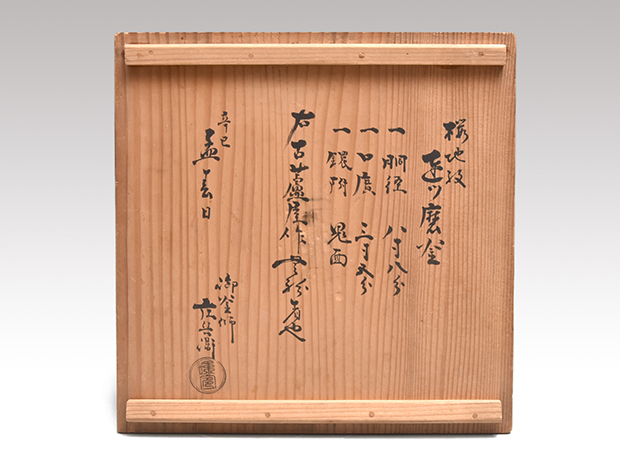 桜地紋
達ツ磨釜
一 胴径 八寸八分
一 口廣 三寸五分
一 鐶附 鬼面
右古蘆屋作 無紛者也
辛巳
孟春日
御釜師
庄兵衛